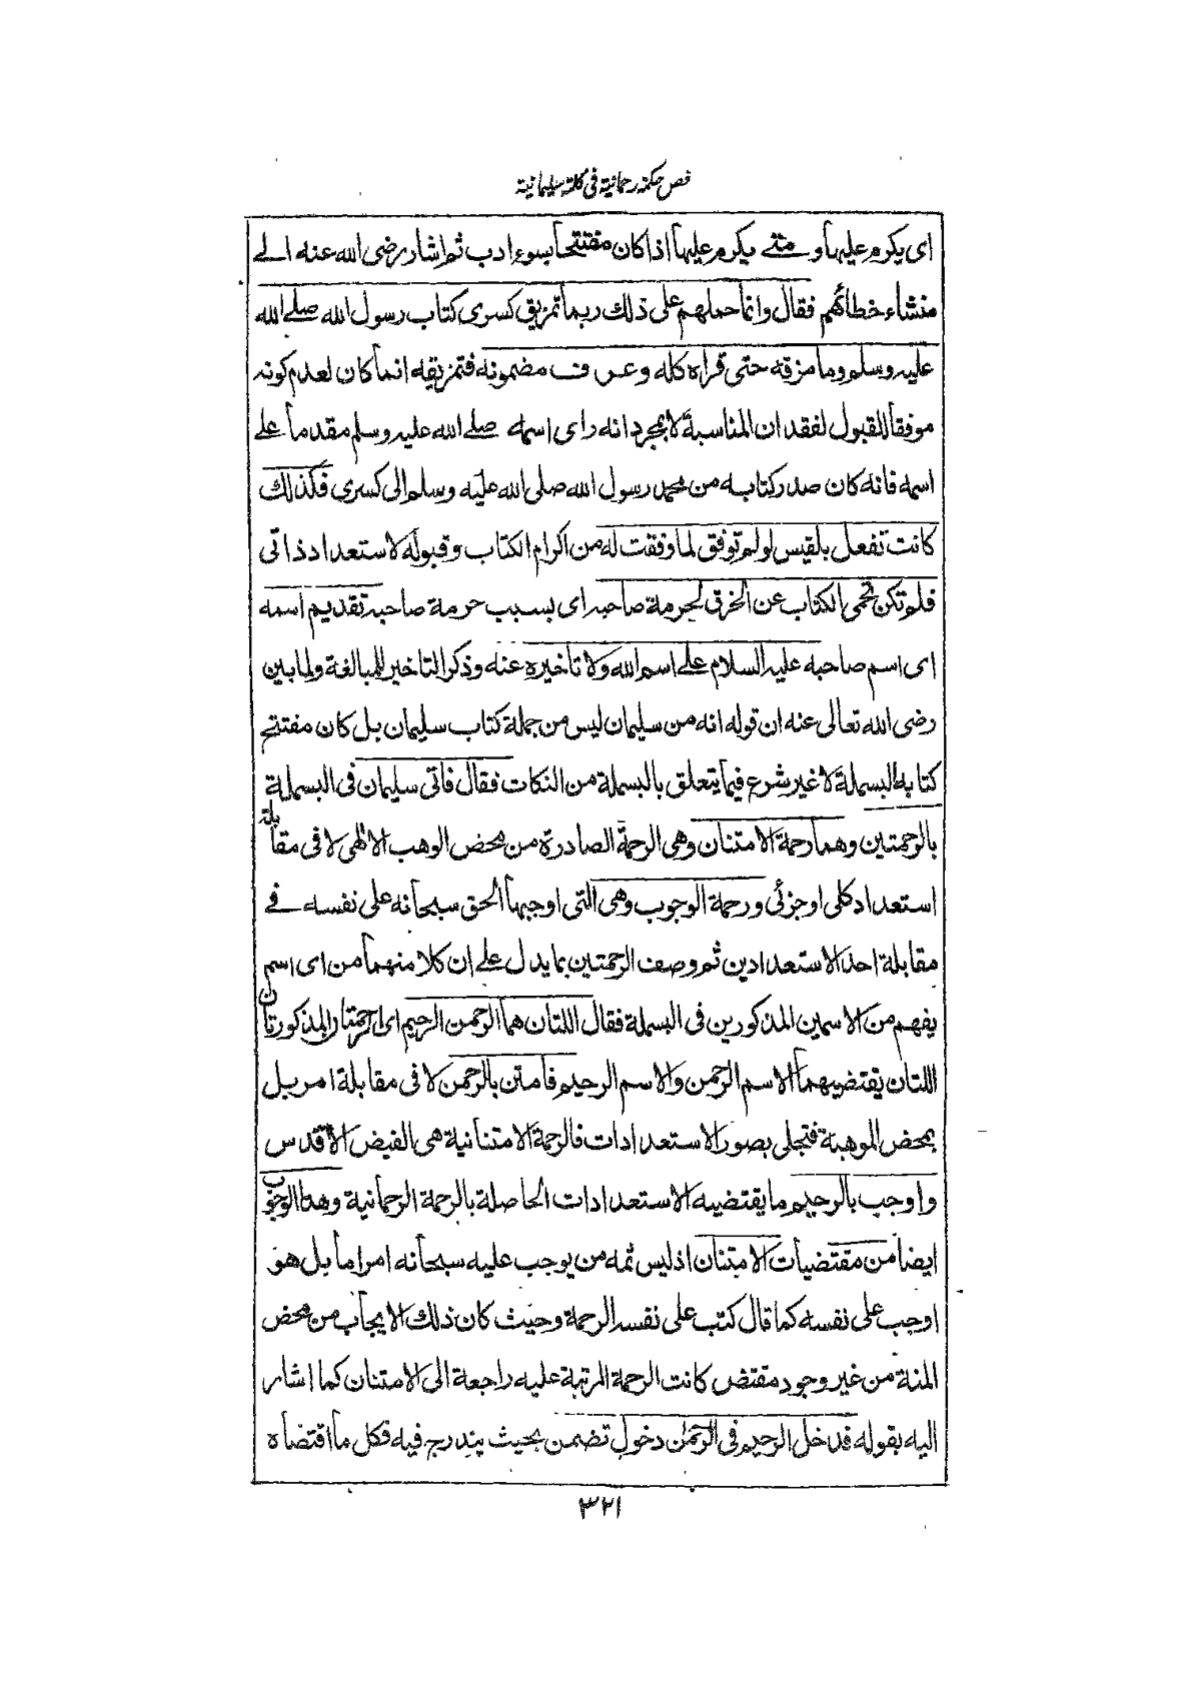 فص حكمة رحمانية في كلمة سليمانية
اى يكرم عليها ومتى يكرم عليها اذا كان مفتتحا بسوء ادب ثم اشار رضى الله عنه الى
منشاء خطائهم فقال وانما حملهم على ذلك ربما تمزيق كسرى كتاب رسول الله صلى الله
عليه وسلم وما مزقه حتى قراه كله وعرف مضمونه فتمزيقه انما كان لعدم كونه
موفقا للقبول لفقدان المناسبة لا بمجرد انه راى اسمه صلى الله عليه وسلم مقدما على
اسمه فانه كان صدر كتابه من محمد رسول الله صلى الله عليه وسلم الى كسرى فكذلك
كانت تفعل بلقيس لو لم توفق لما وفقت له من اكرام الكتاب وقبوله لاستعداد ذاتى
فلم تكن تحمى الكتاب عن الخرق لحرمة صاحبه اى بسبب حرمة صاحبه تقديم اسمه
اى اسم صاحبه عليه السلام على اسم الله ولا تاخيره عنه وذكر التاخير للمبالغة ولما بين
رضى الله تعالى عنه ان قوله انه من سليمان ليس من جملة كتاب سليمان بل كان مفتتح
كتابه البسملة لا غير شرع فيما يتعلق بالبسملة من النكات فقال فاتى سليمان فى البسملة
بالرحمتين وهما رحمة الامتنان وهى الرحمة الصادرة من محض الوهب الالهى لا فى مقابلة
استعداد كلى او جزئى ورحمة الوجوب وهى التى اوجبها الحق سبحانه على نفسه فى
مقابلة احد الاستعدادين ثم وصف الرحمتين بما يدل على ان كلا منهما من اى اسم
يفهم من الاسمين المذكورين فى البسملة فقال اللتان هما الرحمن الرحيم اى الرحمتان المذكورتان
اللتان يقتضيهما الاسم الرحمن والاسم الرحيم فامتن بالرحمن لا فى مقابلة امر بل
بمحض الموهبة فتجلى بصور الاستعدادات فالرحمة الامتنانية هى الفيض الاقدس
واوجب بالرحيم ما يقتضيه الاستعدادات الحاصلة بالرحمة الرحمانية وهذا الوجوب
ايضا من مقتضيات الامتنان اذ ليس ثمه من يوجب عليه سبحانه امرا ما بل هو
اوجب على نفسه كما قال كتب على نفسه الرحمة وحيث كان ذلك الايجاب من محض
المنة من غير وجود مقتض كانت الرحمة المرتبة عليه راجعة الى الامتنان كما اشار
اليه بقوله فدخل الرحيم فى الرحمن دخول تضمن بحيث يندرج فيه فكل ما اقتضاه
٣٢١